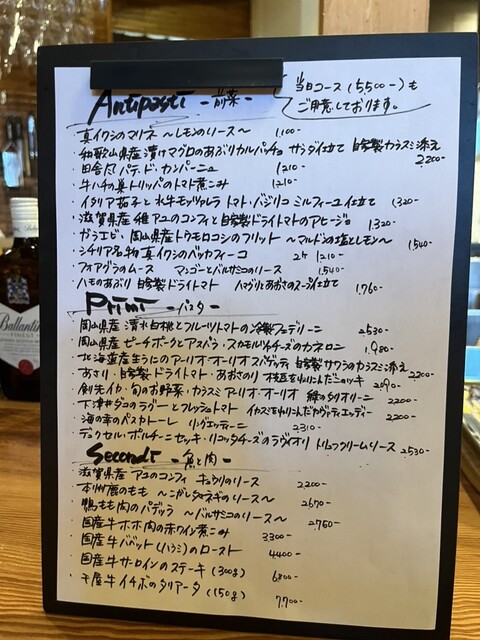 Antipasti -前菜-
当日コース(5500-)も
ご用意しております。
・真イワシのマリネ 〜レモンのソース〜 1,100-
・和歌山県産 漬けマグロのあぶりカルパッチョ サラダ仕立て 自家製カラスミ添え 2,200-
・田舎風 パテ・ド・カンパーニュ 1,210-
・牛ハチの巣トリッパのトマト煮こみ 1,210-
・イタリア茄子と水牛モッツァレラ トマト・バジリコ ミルフィーユ仕立て 1,320-
・滋賀県産 稚アユのコンフィと自家製ドライトマトのアヒージョ 1,320-
・ガラエビ・岡山県産トウモロコシのフリット 〜マルドンの塩とレモン〜 1,540-
・シチリア名物 真イワシのベッカフィーコ 2ケ 1,210-
・フォアグラのムース マンゴーとバルサミコのソース 1,540-
・ハモのあぶり 自家製ドライトマト ハマグリとあおさのスープ仕立て 1,760-
Primi -パスタ-
・岡山県産 清水白桃とフルーツトマトの冷製フェデリーニ 2530-
・岡山県産 ピーチポークとアスパラ・スカモルツァチーズのカネロニ 1,980-
・北海道産生うにのアーリオ・オーリオ スパゲッティ 自家製サワラのカラスミ添え 2,200-
・あさり・自家製ドライトマト・あおさのり 枝豆を練りこんだニョッキ 2090-
・剣先イカ・旬のお野菜・カラスミ アーリオ・オーリオ 緑のタリオリーニ 2200-
・下津井ダコのラグーとフレッシュトマト イカスミを練りこんだカヴァティエッディ 2200-
・海の幸のペスカトーレ リングエッティーニ 2,310-
・デュクセル・ポルチーニセッキ・リコッタチーズのラヴィオリ トリュフクリームソース 2530-
Secondi -魚と肉-
・滋賀県産 アユのコンフィ キュウリのソース 2,200-
・本州鹿のもも 〜こがし玉ネギのソース〜 2670-
・鴨もも肉のパデッラ 〜バルサミコのソース〜 2,750-
・国産牛ホホ肉の赤ワイン煮こみ 3300-
・国産牛バベット(ハラミ)のロースト 4400-
・国産牛サーロインのステーキ(300g) 6800-
・千屋牛イチボのタリアータ(150g) 7,700-
Ballantine's
FINEST